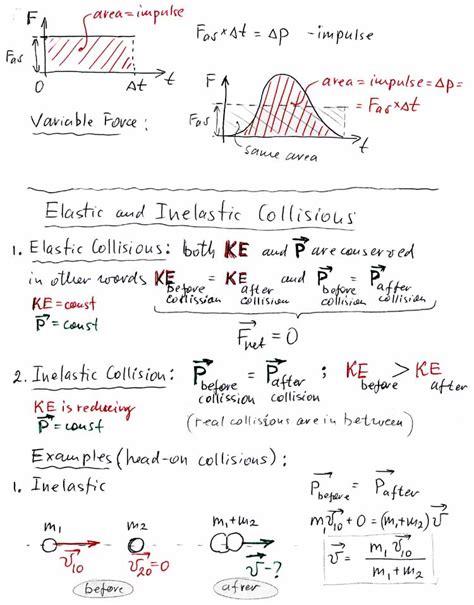 F
area = impulse
F_as × Δt = Δp - impulse
F_as
0 Δt t
F
area = impulse = Δp =
= F_as × Δt
Variable Force:
F_as
same area
t
Elastic and Inelastic Collisions
1. Elastic Collisions: both KE and P⃗ are conserved
in other words KE before collission = KE after collision and P⃗ before collision = P⃗ after collision
KE = const
P⃗ = const
F⃗net = 0
2. Inelastic Collision: P⃗ before collission = P⃗ after collision ; KE before > KE after
KE is reducing
P⃗ = const
(real collisions are in between)
Examples (head-on collisions):
1. Inelastic
P⃗before = P⃗after
m₁ m₂ m₁+m₂
m₁v⃗₁₀ + 0 = (m₁+m₂)v⃗
v⃗₁₀ v⃗₂₀=0 v⃗-?
v⃗ = m₁v⃗₁₀ / m₁+m₂
before after